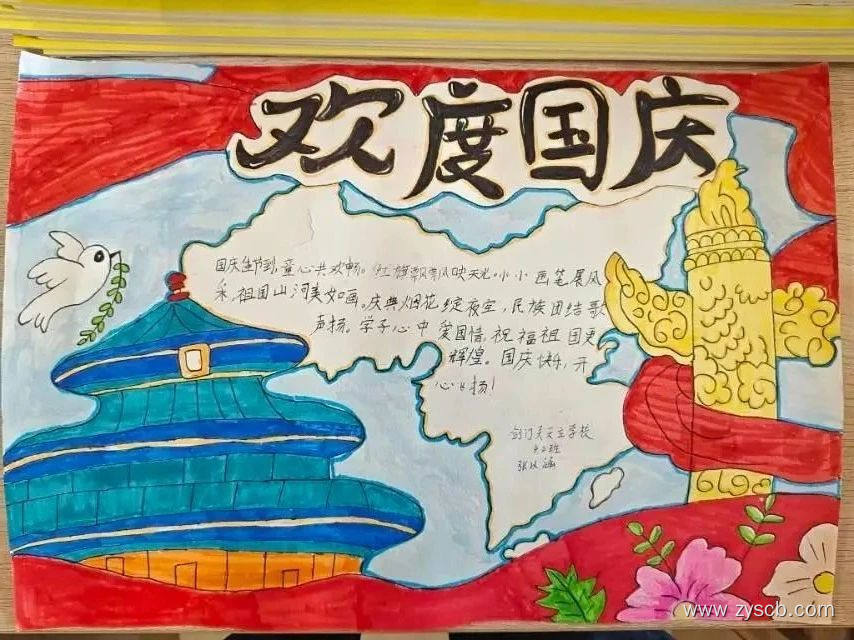 欢度国庆
国庆佳节到,童心共欢畅。红旗飘飘映天光。小小画笔展风
采,祖国山河美如画。庆典烟花绽夜空,民族团结歌
声扬。学子心中爱国情,祝福祖国更
辉煌。国庆快乐,开
心飞扬!
学校
班
张
www.zyscb.com